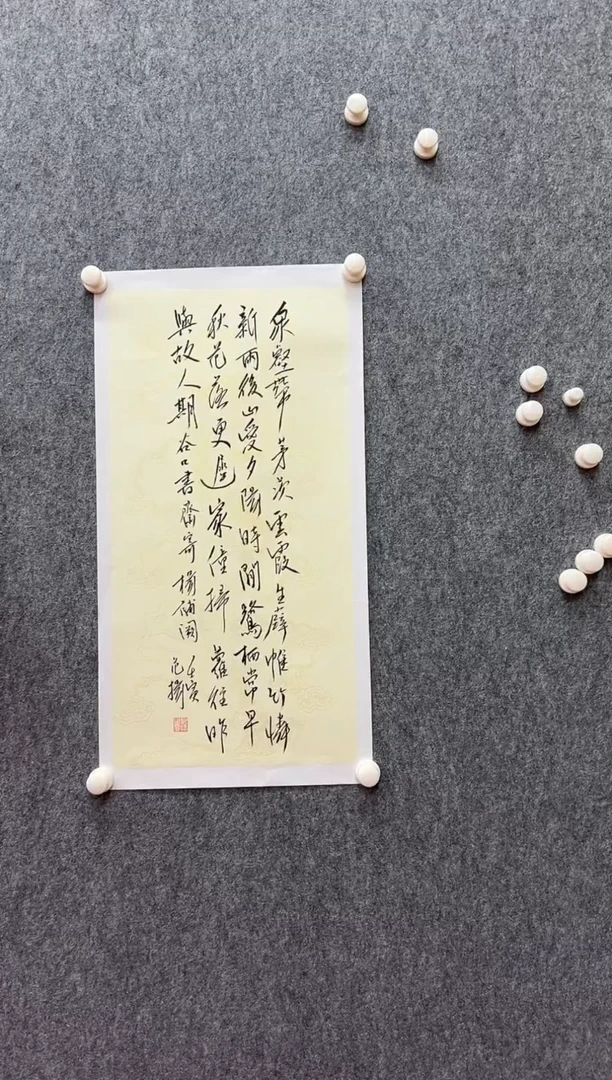 泉壑帶茅茨雲霞生薜帷竹憐
新雨後山愛夕陽時閒鷺栖常早
秋花落更遲家僮掃蘿徑昨
與故人期谷口書齋寄楊補闕壬寅
范